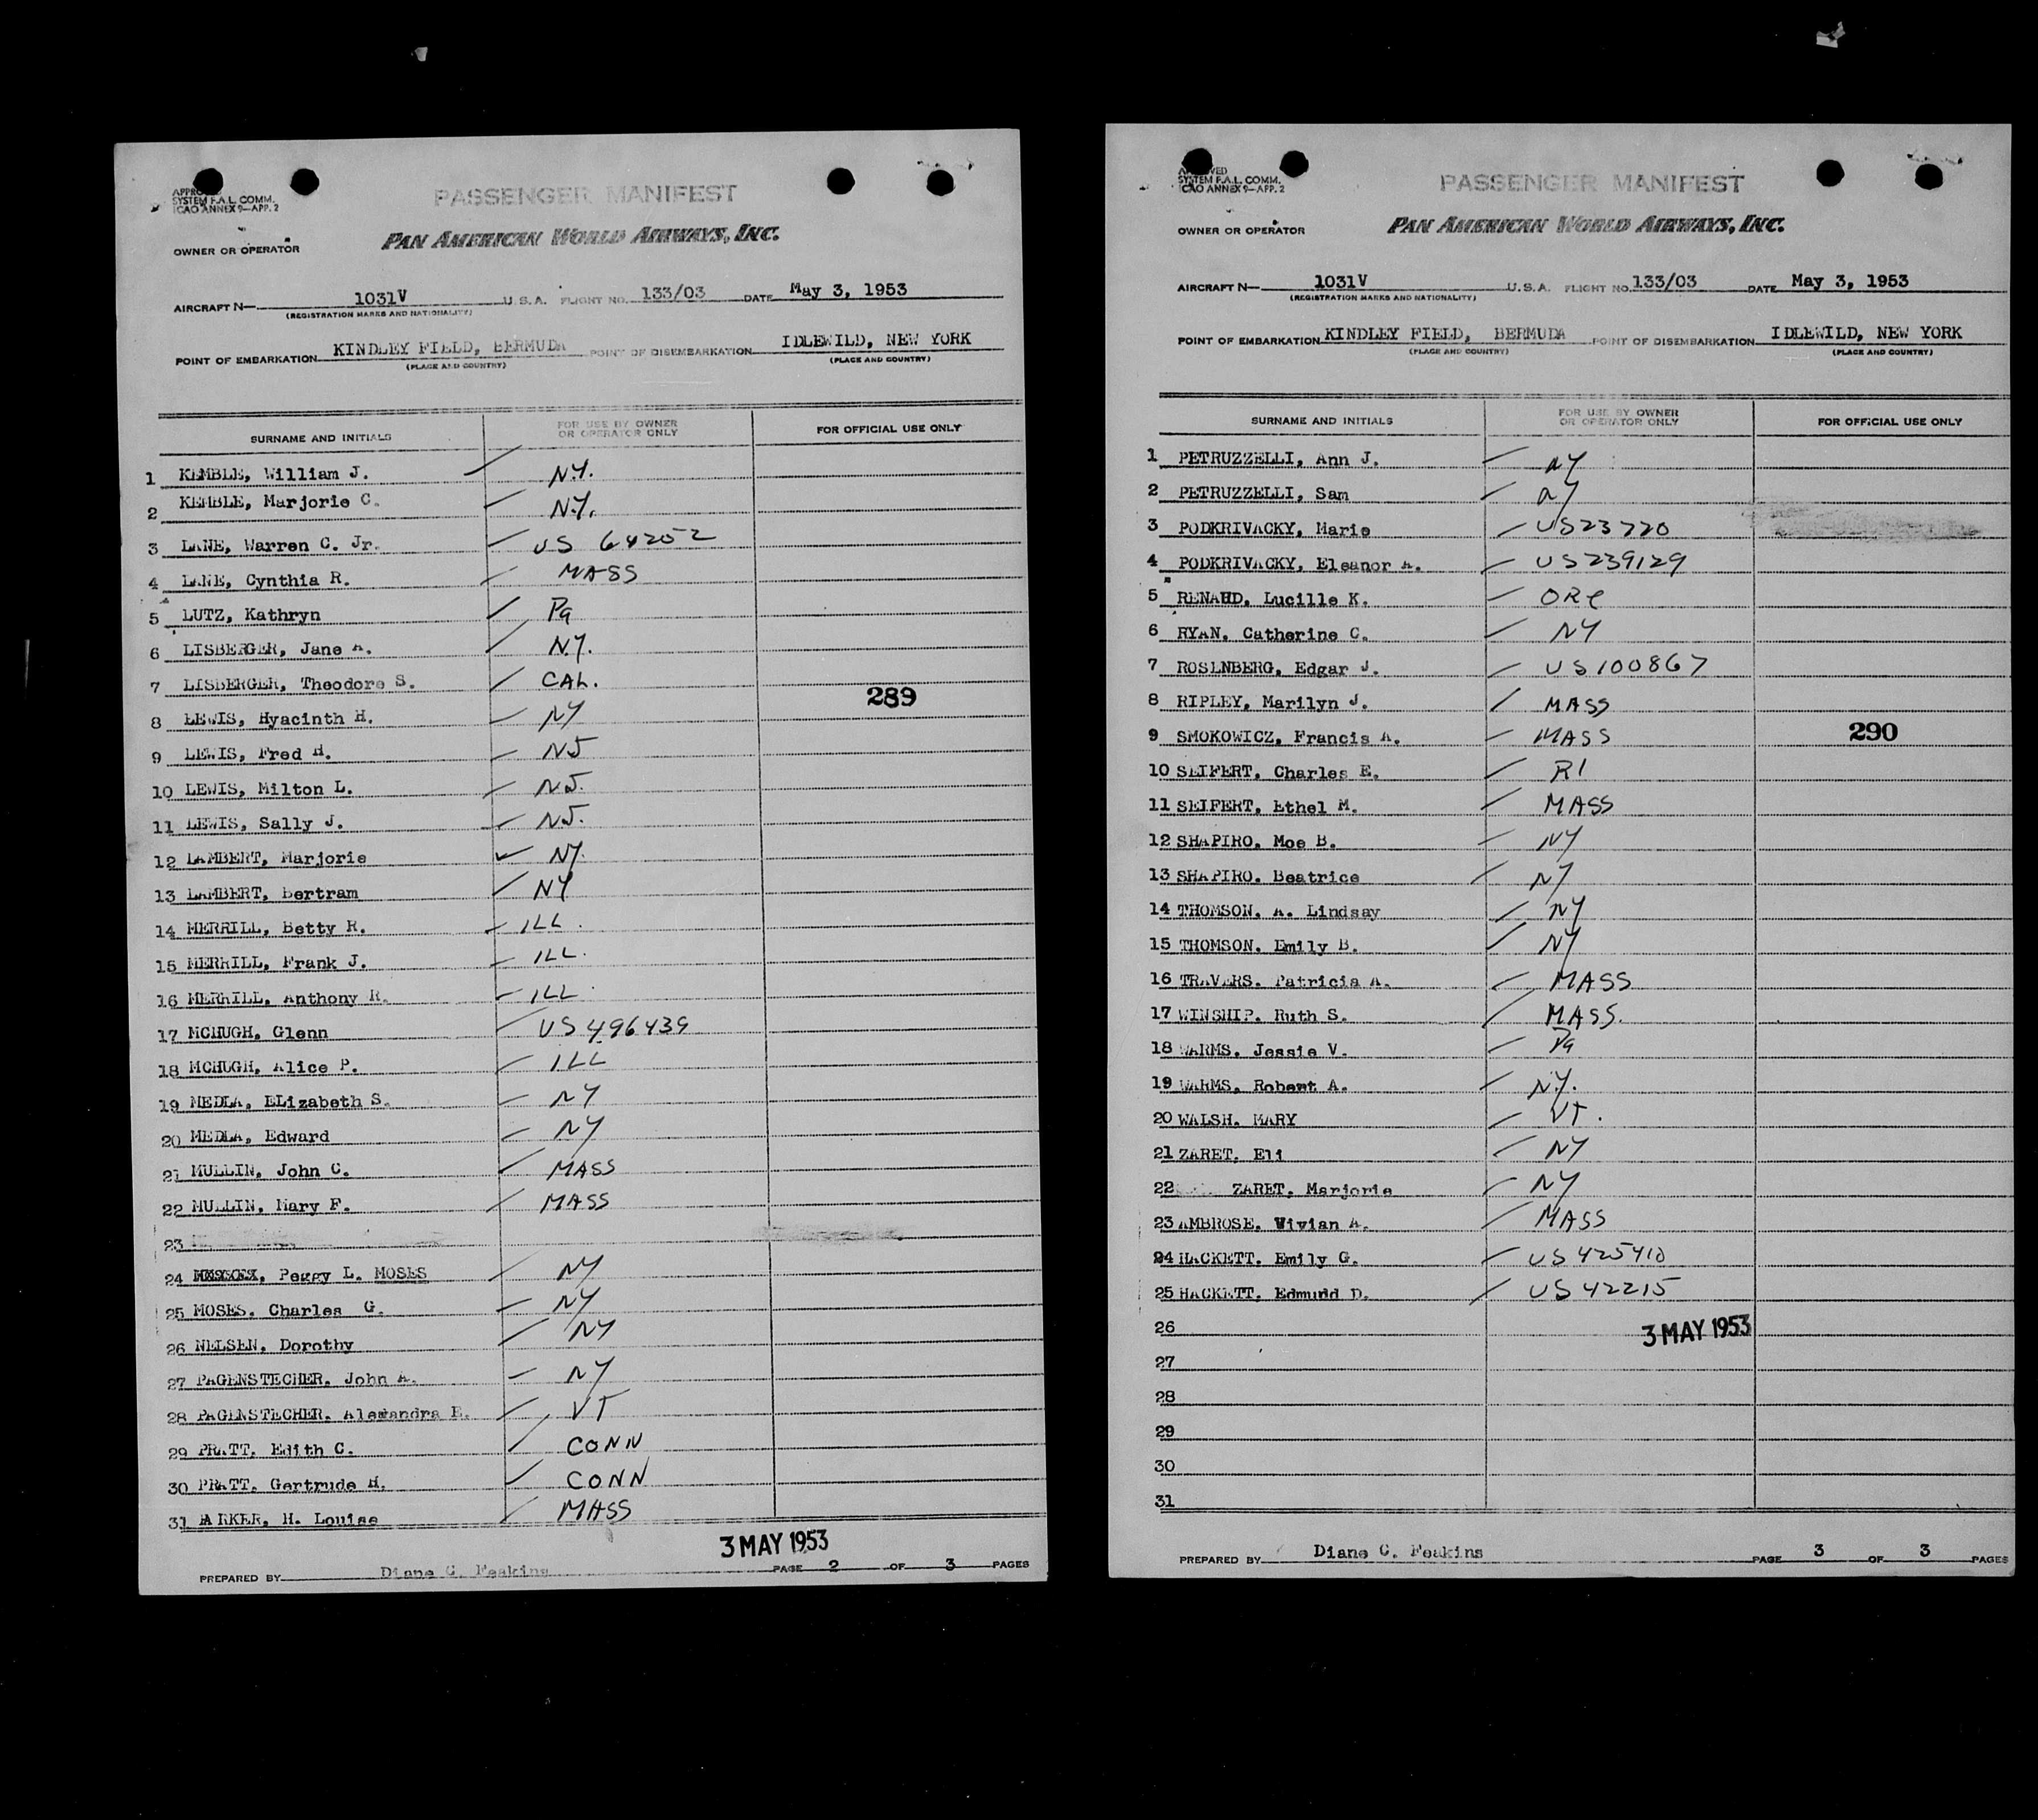 APPRO
SYSTEM F.A.L. COMM.
ICAO ANNEX 9—APP. 2
PASSENGER MANIFEST
OWNER OR OPERATOR PAN AMERICAN WORLD AIRWAYS, INC.
AIRCRAFT N— 1031V U.S.A. FLIGHT NO. 133/03 DATE May 3, 1953
(REGISTRATION MARKS AND NATIONALITY)
POINT OF EMBARKATION KINDLEY FIELD, BERMUDA POINT OF DISEMBARKATION IDLEWILD, NEW YORK
(PLACE AND COUNTRY) (PLACE AND COUNTRY)
SURNAME AND INITIALS FOR USE BY OWNER OR OPERATOR ONLY FOR OFFICIAL USE ONLY
1 KEMBLE, William J. N.Y.
2 KEMBLE, Marjorie C. N.Y.
3 LANE, Warren C. Jr. US 64252
4 LANE, Cynthia R. MASS
5 LUTZ, Kathryn Pa
6 LISBERGER, Jane A. N.Y.
7 LISBERGER, Theodore S. CAL.
289
8 LEWIS, Hyacinth H. NY
9 LEWIS, Fred H. NJ
10 LEWIS, Milton L. NJ.
11 LEWIS, Sally J. NJ.
12 LAMBERT, Marjorie NY.
13 LAMBERT, Bertram NY
14 MERRILL, Betty R. ILL.
15 MERRILL, Frank J. ILL.
16 MERRILL, Anthony R. ILL.
17 MCHUGH, Glenn US 496439
18 MCHUGH, Alice P. ILL
19 MEDLA, ELizabeth S. NY
20 MEDLA, Edward NY
21 MULLIN, John C. MASS
22 MULLIN, Mary F. MASS
23
24 Peggy L. MOSES NY
25 MOSES. Charles G. NY
26 NELSEN. Dorothy NY
27 PAGENSTECHER. John A. NY
28 PAGENSTECHER. Alexandra E. VT
29 PRATT. Edith C. CONN
30 PRATT. Gertrude H. CONN
31 PARKER, H. Louise MASS
3 MAY 1953
PREPARED BY Diane C. Feakins PAGE 2 OF 3 PAGES
VED
SYSTEM F.A.L. COMM.
ICAO ANNEX 9—APP. 2
PASSENGER MANIFEST
OWNER OR OPERATOR PAN AMERICAN WORLD AIRWAYS, INC.
AIRCRAFT N— 1031V U.S.A. FLIGHT NO. 133/03 DATE May 3, 1953
(REGISTRATION MARKS AND NATIONALITY)
POINT OF EMBARKATION KINDLEY FIELD, BERMUDA POINT OF DISEMBARKATION IDLEWILD, NEW YORK
(PLACE AND COUNTRY) (PLACE AND COUNTRY)
SURNAME AND INITIALS FOR USE BY OWNER OR OPERATOR ONLY FOR OFFICIAL USE ONLY
1 PETRUZZELLI, Ann J. NY
2 PETRUZZELLI, Sam NY
3 PODKRIVACKY, Marie US23720
4 PODKRIVACKY, Eleanor A. US239129
5 RENAUD, Lucille K. ORE
6 RYAN, Catherine C. NY
7 ROSENBERG, Edgar J. US100867
8 RIPLEY, Marilyn J. MASS
9 SMOKOWICZ, Francis A. MASS 290
10 SEIFERT, Charles E. RI
11 SEIFERT, Ethel M. MASS
12 SHAPIRO. Moe B. NY
13 SHAPIRO. Beatrice NY
14 THOMSON. A. Lindsay NY
15 THOMSON. Emily B. NY
16 TRAVERS. Patricia A. MASS
17 WINSHIP. Ruth S. MASS.
18 WARMS. Jessie V. Pa
19 WARMS. Robert A. N.Y.
20 WALSH. MARY VT.
21 ZARET. Eli NY
22 ZARET. Marjorie NY
23 AMBROSE. Vivian A. MASS
24 HACKETT. Emily G. US 425410
25 HACKETT. Edmund D. US 42215
26 3 MAY 1953
27
28
29
30
31
PREPARED BY Diane C. Feakins PAGE 3 OF 3 PAGES